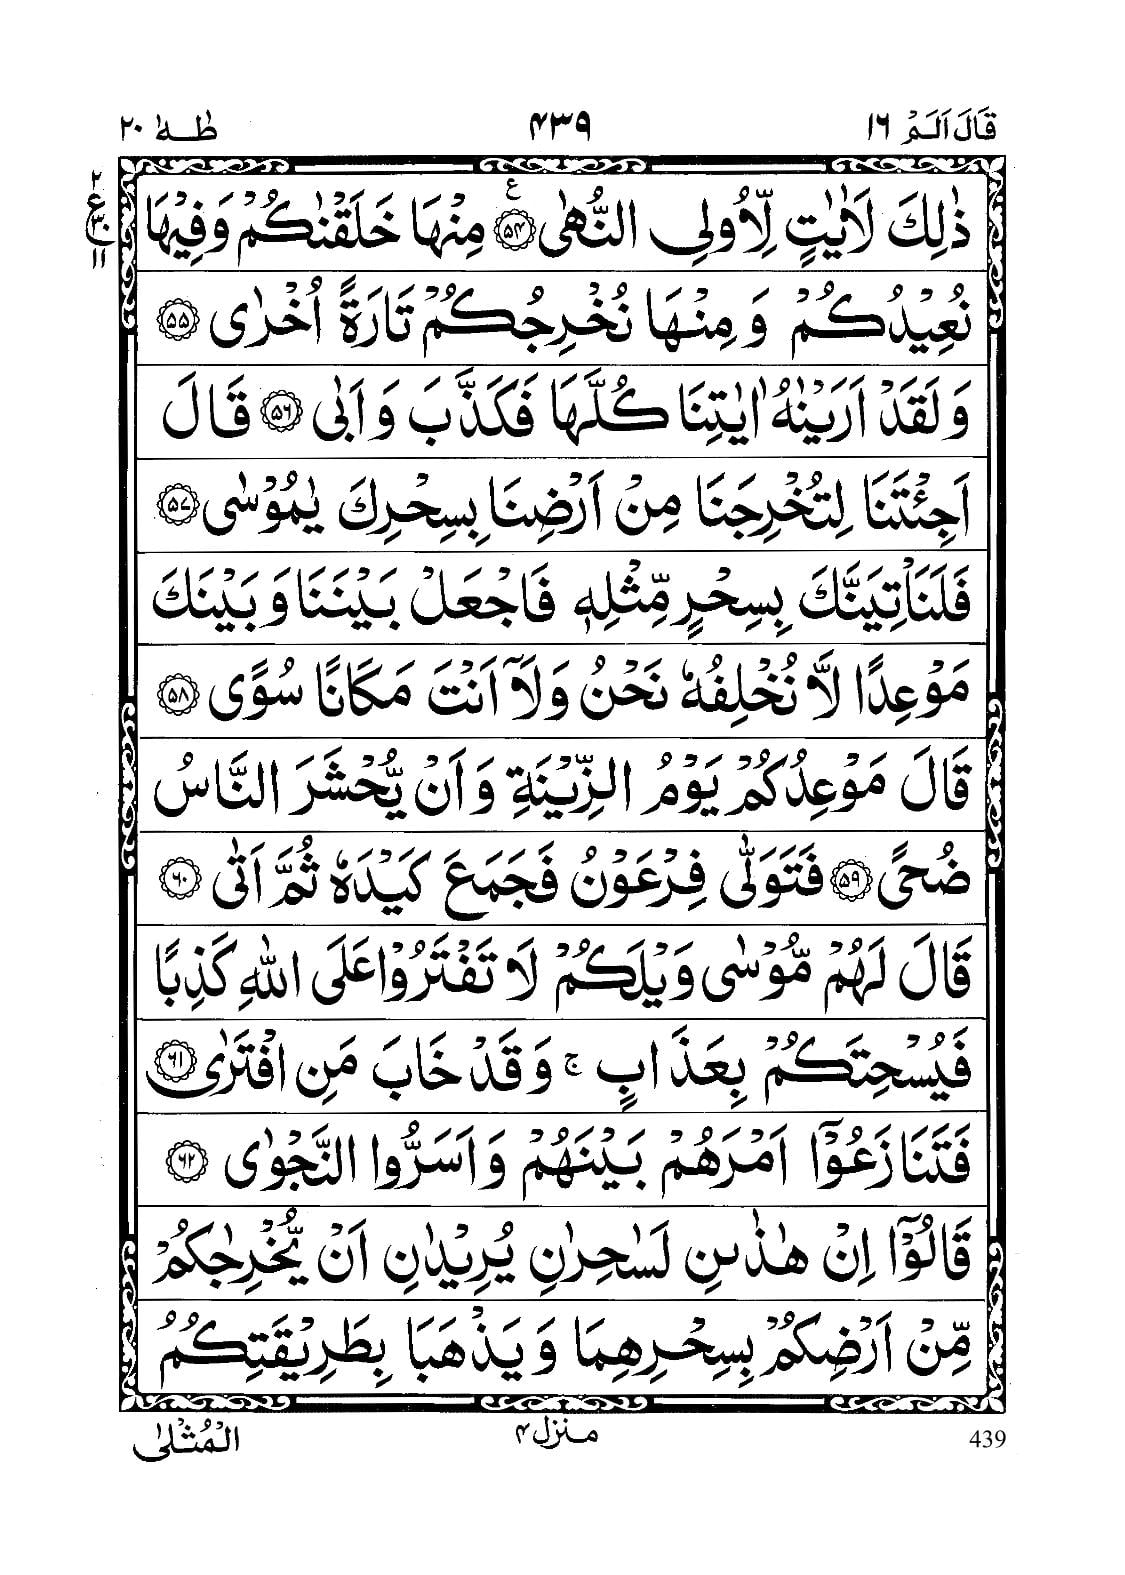 قَالَ اَلَمْ ١٦
۴۳۹
طٰهٰ ۲۰
ذٰلِكَ لَاٰيٰتٍ لِّاُولِى النُّهٰى ﴿۵۴﴾ ع مِنْهَا خَلَقْنٰكُمْ وَفِيْهَا
٢
ع
٣٠
١١
نُعِيْدُكُمْ وَمِنْهَا نُخْرِجُكُمْ تَارَةً اُخْرٰى ﴿۵۵﴾
وَلَقَدْ اَرَيْنٰهُ اٰيٰتِنَا كُلَّهَا فَكَذَّبَ وَاَبٰى ﴿۵۶﴾ قَالَ
اَجِئْتَنَا لِتُخْرِجَنَا مِنْ اَرْضِنَا بِسِحْرِكَ يٰمُوْسٰى ﴿۵۷﴾
فَلَنَاْتِيَنَّكَ بِسِحْرٍ مِّثْلِهٖ فَاجْعَلْ بَيْنَنَا وَبَيْنَكَ
مَوْعِدًا لَّا نُخْلِفُهٗ نَحْنُ وَلَآ اَنْتَ مَكَانًا سُوًى ﴿۵۸﴾
قَالَ مَوْعِدُكُمْ يَوْمُ الزِّيْنَةِ وَاَنْ يُّحْشَرَ النَّاسُ
ضُحًى ﴿۵۹﴾ فَتَوَلّٰى فِرْعَوْنُ فَجَمَعَ كَيْدَهٗ ثُمَّ اَتٰى ﴿۶۰﴾
قَالَ لَهُمْ مُّوْسٰى وَيْلَكُمْ لَا تَفْتَرُوْا عَلَى اللّٰهِ كَذِبًا
فَيُسْحِتَكُمْ بِعَذَابٍ ۚ وَقَدْ خَابَ مَنِ افْتَرٰى ﴿۶۱﴾
فَتَنَازَعُوْٓا اَمْرَهُمْ بَيْنَهُمْ وَاَسَرُّوا النَّجْوٰى ﴿۶۲﴾
قَالُوْٓا اِنْ هٰذٰىنِ لَسٰحِرٰنِ يُرِيْدٰنِ اَنْ يُّخْرِجٰكُمْ
مِّنْ اَرْضِكُمْ بِسِحْرِهِمَا وَيَذْهَبَا بِطَرِيْقَتِكُمُ
439
منزل ۴
الْمُثْلٰى